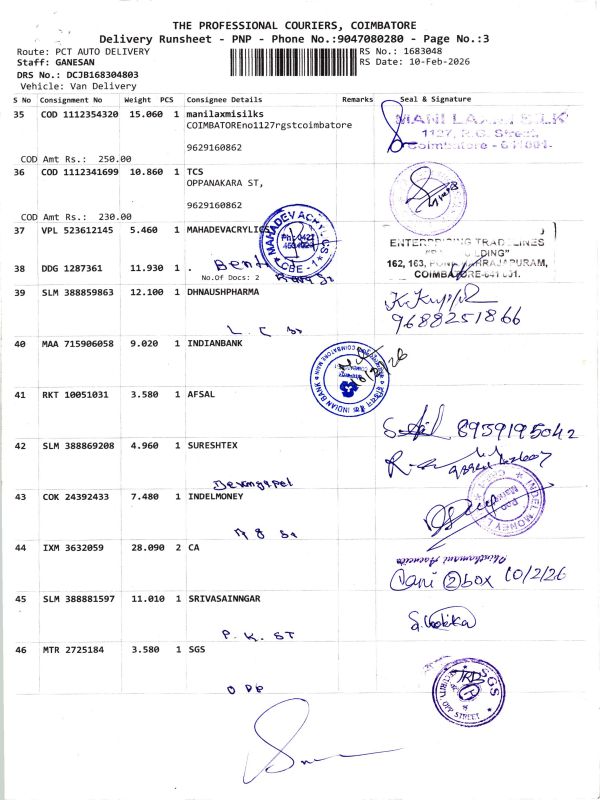 THE PROFESSIONAL COURIERS, COIMBATORE
Delivery Runsheet - PNP - Phone No.:9047080280 - Page No.:3
Route: PCT AUTO DELIVERY
RS No.: 1683048
Staff: GANESAN
RS Date: 10-Feb-2026
DRS No.: DCJB168304803
Vehicle: Van Delivery
S No Consignment No Weight PCS Consignee Details Remarks Seal & Signature
35 COD 1112354320 15.060 1 manilaxmisilks
COIMBATOREno1127rgstcoimbatore
9629160862
COD Amt Rs.: 250.00
MANI LAXMI SILK
1127, R.G. Street,
Coimbatore - 641001.
36 COD 1112341699 10.860 1 TCS
OPPANAKARA ST,
9629160862
COD Amt Rs.: 230.00
37 VPL 523612145 5.460 1 MAHADEVACRYLICS
MAHADEV ACRYLICS
CBE - 1
ENTERPRISING TRADELINES
162, 163,
COIMBATORE-641 001.
38 DDG 1287361 11.930 1 .
No.Of Docs: 2
39 SLM 388859863 12.100 1 DHNAUSHPHARMA
9688251866
40 MAA 715906058 9.020 1 INDIANBANK
INDIAN BANK
COIMBATORE MAIN
41 RKT 10051031 3.580 1 AFSAL
8959195042
42 SLM 388869208 4.960 1 SURESHTEX
43 COK 24392433 7.480 1 INDELMONEY
INDEL MONEY
44 IXM 3632059 28.090 2 CA
Vani 2 box 10/2/26
45 SLM 388881597 11.010 1 SRIVASAINNGAR
P. K. ST
46 MTR 2725184 3.580 1 SGS
OPP
SGS
OPP STREET